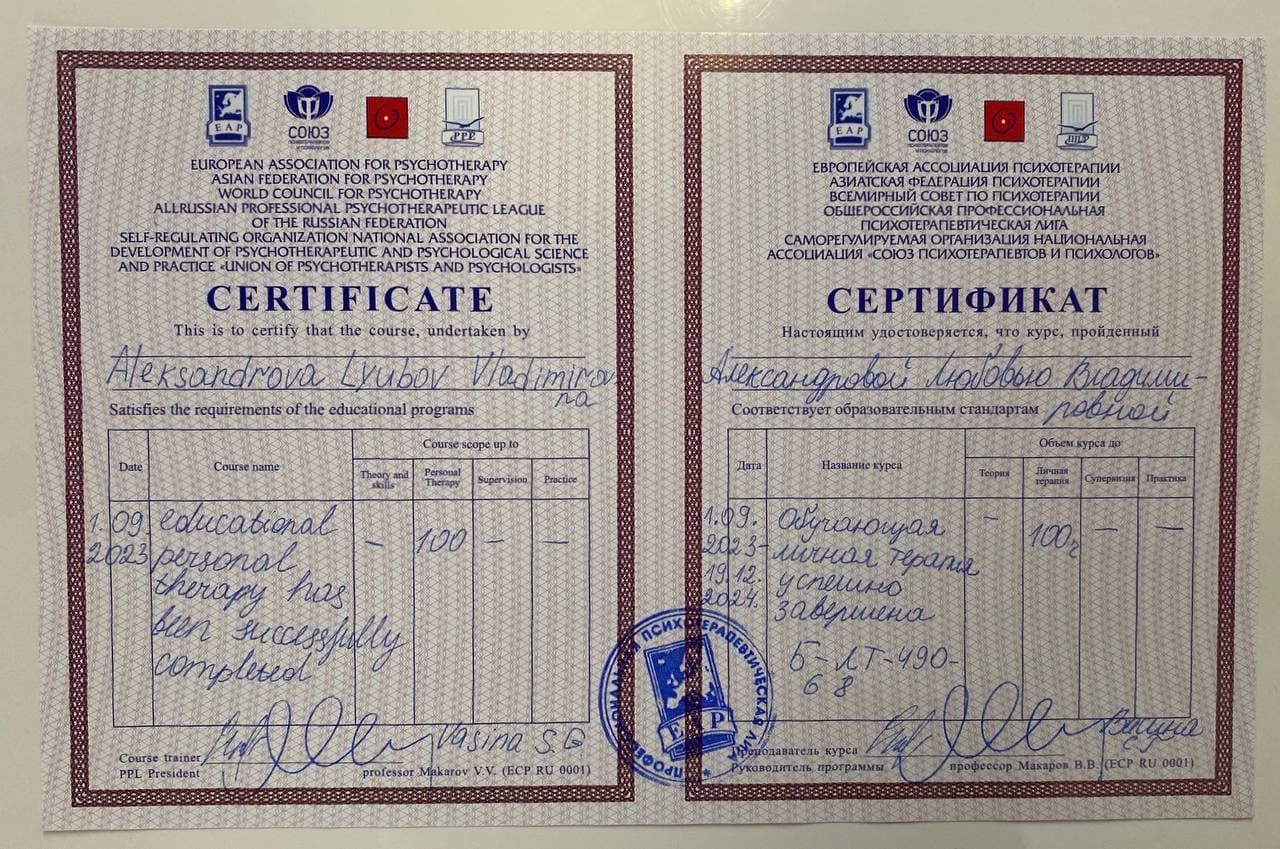 EAP
СОЮЗ
ПСИХОТЕРАПЕВТОВ
И ПСИХОЛОГОВ
PPL
EUROPEAN ASSOCIATION FOR PSYCHOTHERAPY
ASIAN FEDERATION FOR PSYCHOTHERAPY
WORLD COUNCIL FOR PSYCHOTHERAPY
ALLRUSSIAN PROFESSIONAL PSYCHOTHERAPEUTIC LEAGUE
OF THE RUSSIAN FEDERATION
SELF-REGULATING ORGANIZATION NATIONAL ASSOCIATION FOR THE
DEVELOPMENT OF PSYCHOTHERAPEUTIC AND PSYCHOLOGICAL SCIENCE
AND PRACTICE «UNION OF PSYCHOTHERAPISTS AND PSYCHOLOGISTS»
CERTIFICATE
This is to certify that the course, undertaken by
Aleksandrova Lyubov Vladimirov
na
Satisfies the requirements of the educational programs
Course scope up to
Date Course name Theory and skills Personal Therapy Supervision Practice
1.09 educational
2023 personal — 100 — —
therapy has
been successfully
completed
Course trainer Vasina S.
PPL President professor Makarov V.V. (ECP RU 0001)
EAP
СОЮЗ
ПСИХОТЕРАПЕВТОВ
И ПСИХОЛОГОВ
ППЛ
ЕВРОПЕЙСКАЯ АССОЦИАЦИЯ ПСИХОТЕРАПИИ
АЗИАТСКАЯ ФЕДЕРАЦИЯ ПСИХОТЕРАПИИ
ВСЕМИРНЫЙ СОВЕТ ПО ПСИХОТЕРАПИИ
ОБЩЕРОССИЙСКАЯ ПРОФЕССИОНАЛЬНАЯ
ПСИХОТЕРАПЕВТИЧЕСКАЯ ЛИГА
САМОРЕГУЛИРУЕМАЯ ОРГАНИЗАЦИЯ НАЦИОНАЛЬНАЯ
АССОЦИАЦИЯ «СОЮЗ ПСИХОТЕРАПЕВТОВ И ПСИХОЛОГОВ»
СЕРТИФИКАТ
Настоящим удостоверяется, что курс, пройденный
Александровой Любовью Владими-
ровной
Соответствует образовательным стандартам
Объем курса до
Дата Название курса Теория Личная терапия Супервизия Практика
1.09. Обучающая — 100ч — —
2023- личная терапия
19.12. успешно
2024. завершена
Б-ЛТ-490-
68
Преподаватель курса Васина
Руководитель программы профессор Макаров В.В. (ECP RU 0001)
ПРОФЕССИОНАЛЬНАЯ ПСИХОТЕРАПЕВТИЧЕСКАЯ ЛИГА
EAP